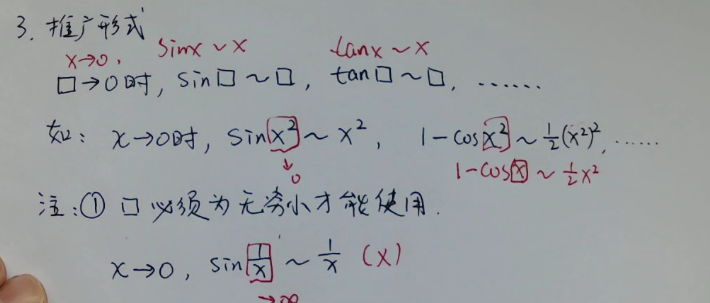 3. 推广形式
x→0, sinx~x tanx~x
□→0时, sin□~□, tan□~□, ……
如: x→0时, sin[x²]~x², 1-cos[x²]~½(x²)², ……
↓0 1-cos[x]~½x²
注:① □必须为无穷小才能使用.
x→0, sin[1/x]~1/x (×)
→∞